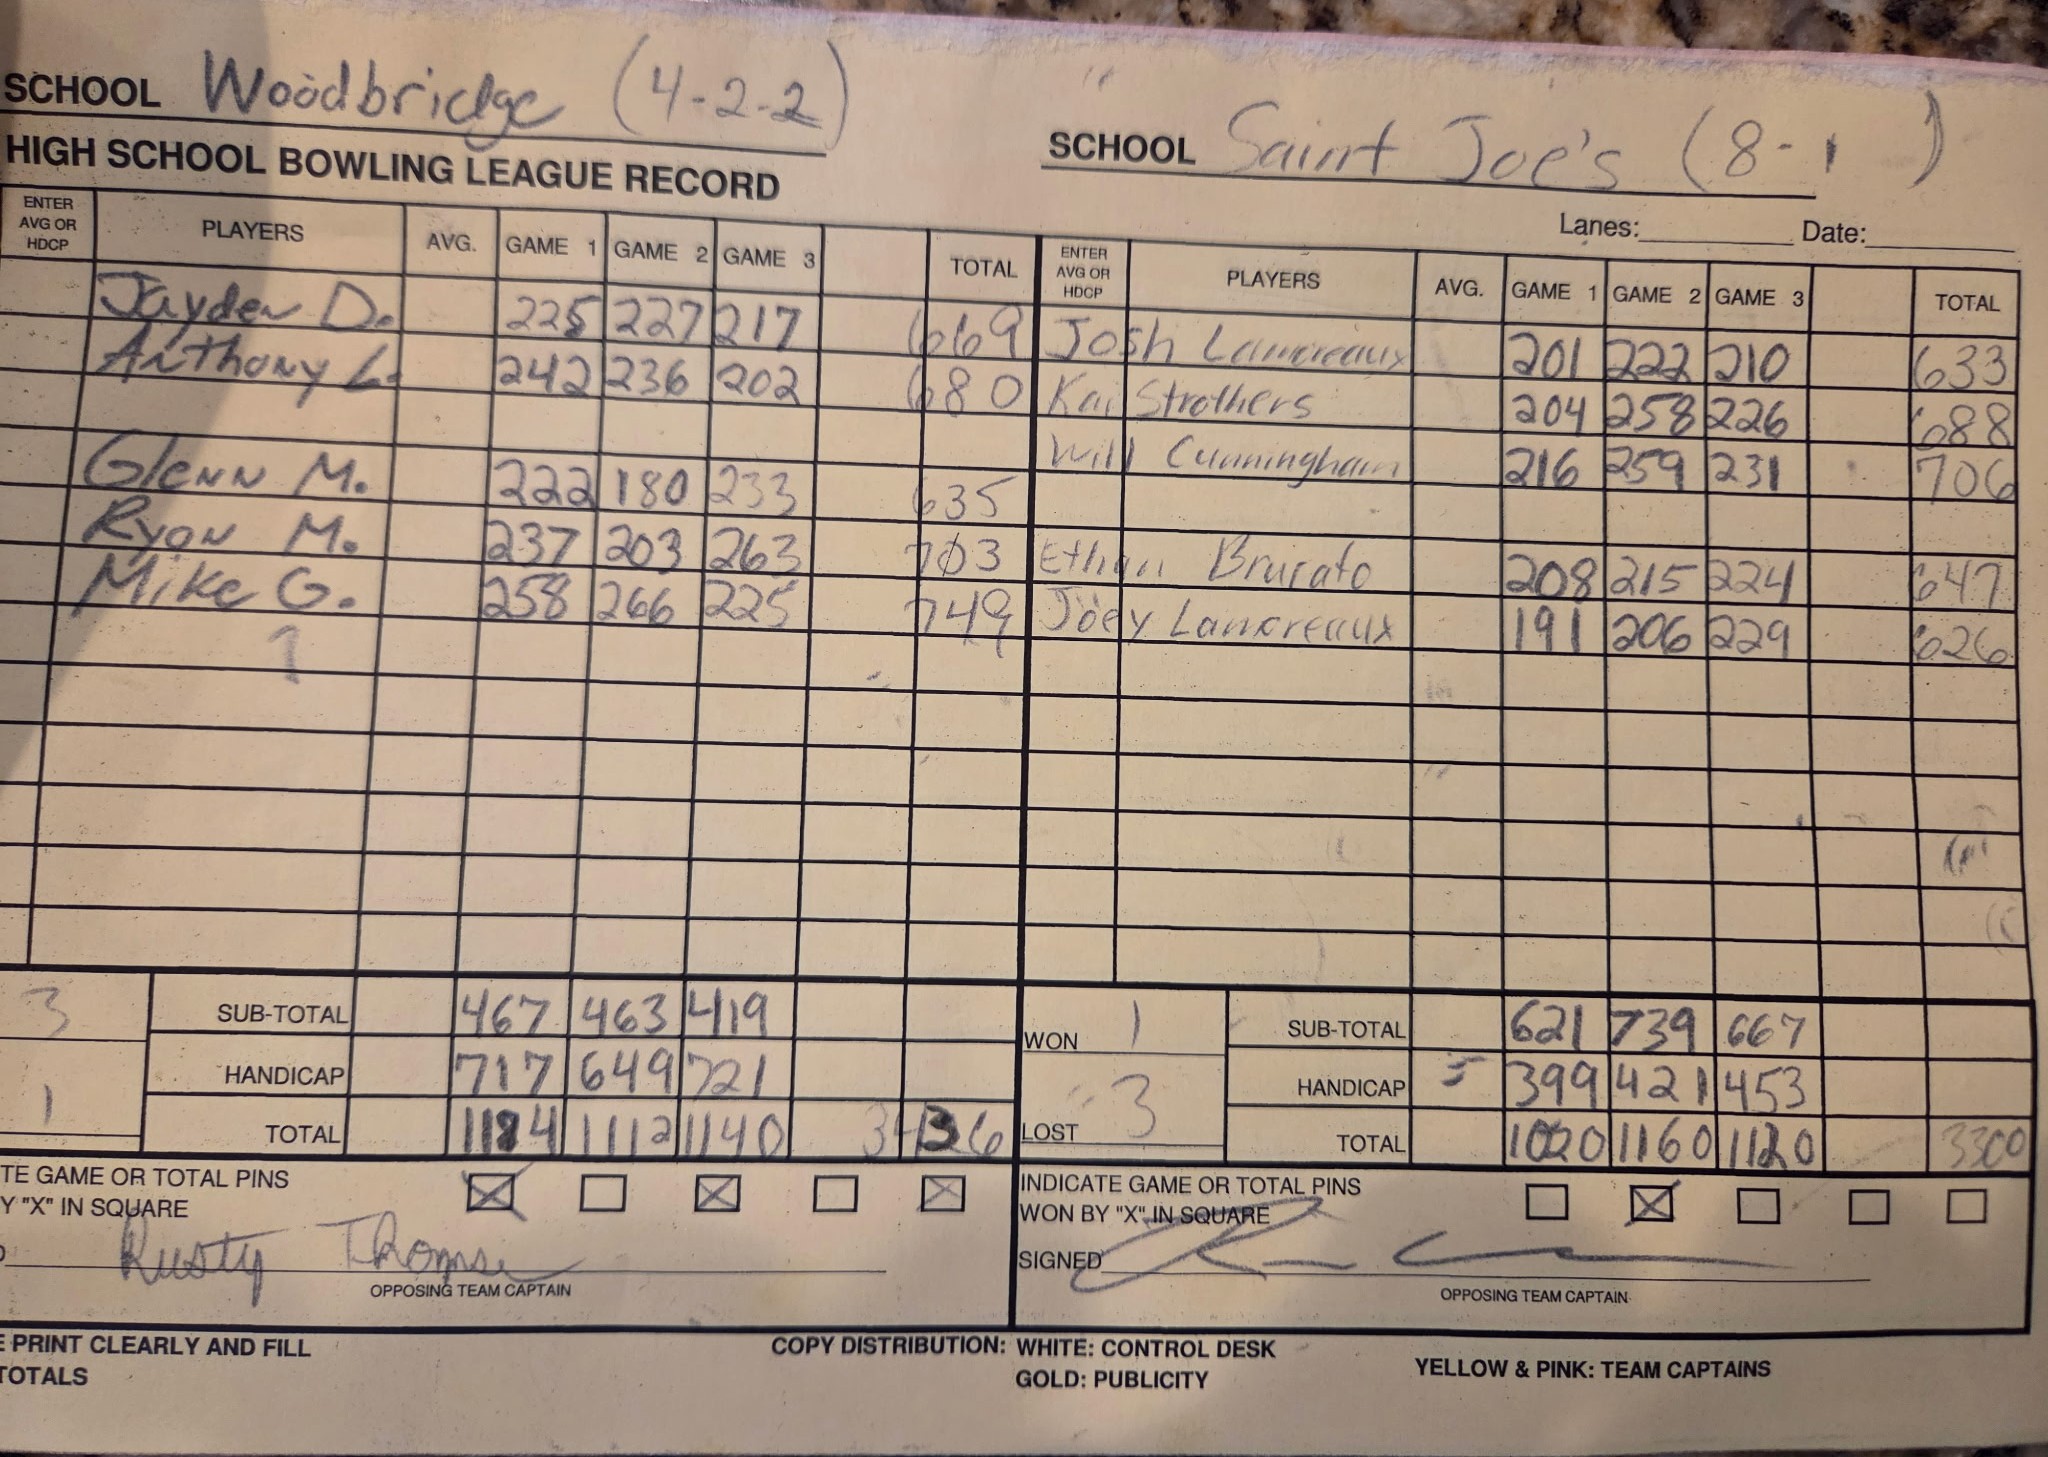 SCHOOL Woodbridge (4-2-2)
SCHOOL Saint Joe's (8-1 )
HIGH SCHOOL BOWLING LEAGUE RECORD
Lanes: Date:
ENTER AVG OR HDCP PLAYERS AVG. GAME 1 GAME 2 GAME 3 TOTAL
Jayden D. 225 227 217 669
Anthony L. 242 236 202 680
Glenn M. 222 180 233 635
Ryan M. 237 203 263 703
Mike G. 258 266 225 749
3 SUB-TOTAL 467 463 419
HANDICAP 717 649 721
1 TOTAL 1184 1112 1140
TE GAME OR TOTAL PINS
Y "X" IN SQUARE
Rusty
OPPOSING TEAM CAPTAIN
ENTER AVG OR HDCP PLAYERS AVG. GAME 1 GAME 2 GAME 3 TOTAL
Josh Lamoreaux 201 222 210 633
Kai Strothers 204 258 226 688
Will Cunningham 216 259 231 706
Ethan Brucato 208 215 224 647
Joey Lamoreaux 191 206 229 626
WON 1 SUB-TOTAL 621 739 667
HANDICAP 399 421 453
LOST 3 TOTAL 1020 1160 1120 3300
INDICATE GAME OR TOTAL PINS
WON BY "X" IN SQUARE
SIGNED
OPPOSING TEAM CAPTAIN
E PRINT CLEARLY AND FILL
TOTALS
COPY DISTRIBUTION: WHITE: CONTROL DESK
GOLD: PUBLICITY
YELLOW & PINK: TEAM CAPTAINS